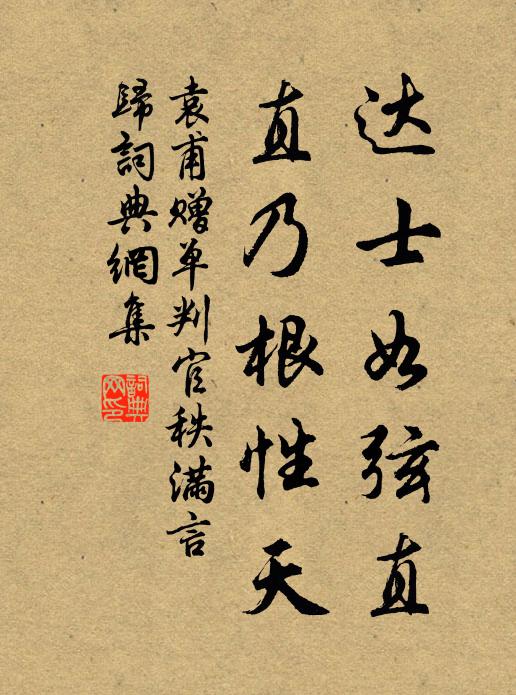 达士如弦直
直乃根性天
袁甫赠单判官秩满言
歸詞典網集
詞典
网印